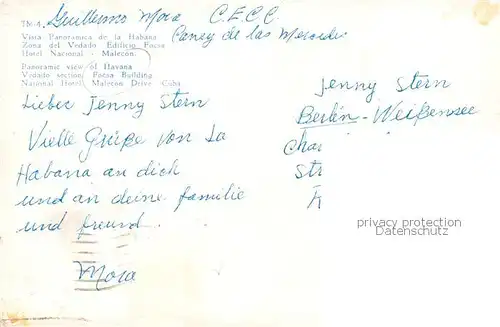 Guillermo Mora C.E.C.C.
Caney de las Mercedes
TM-4.
Vista Panoramica de la Habana
Zona del Vedado Edificio Focsa
Hotel Nacional - Malecon.
Panoramic view of Havana
Vedado section Focsa Building
National Hotel Malecon Drive Cuba
Lieber Jenny Stern
Vielle Grüße von La
Habana an dich
und an deine familie
und freund.
Mora
Jenny Stern
Berlín-Weißensee
Char
Str
privacy protection
Datenschutz